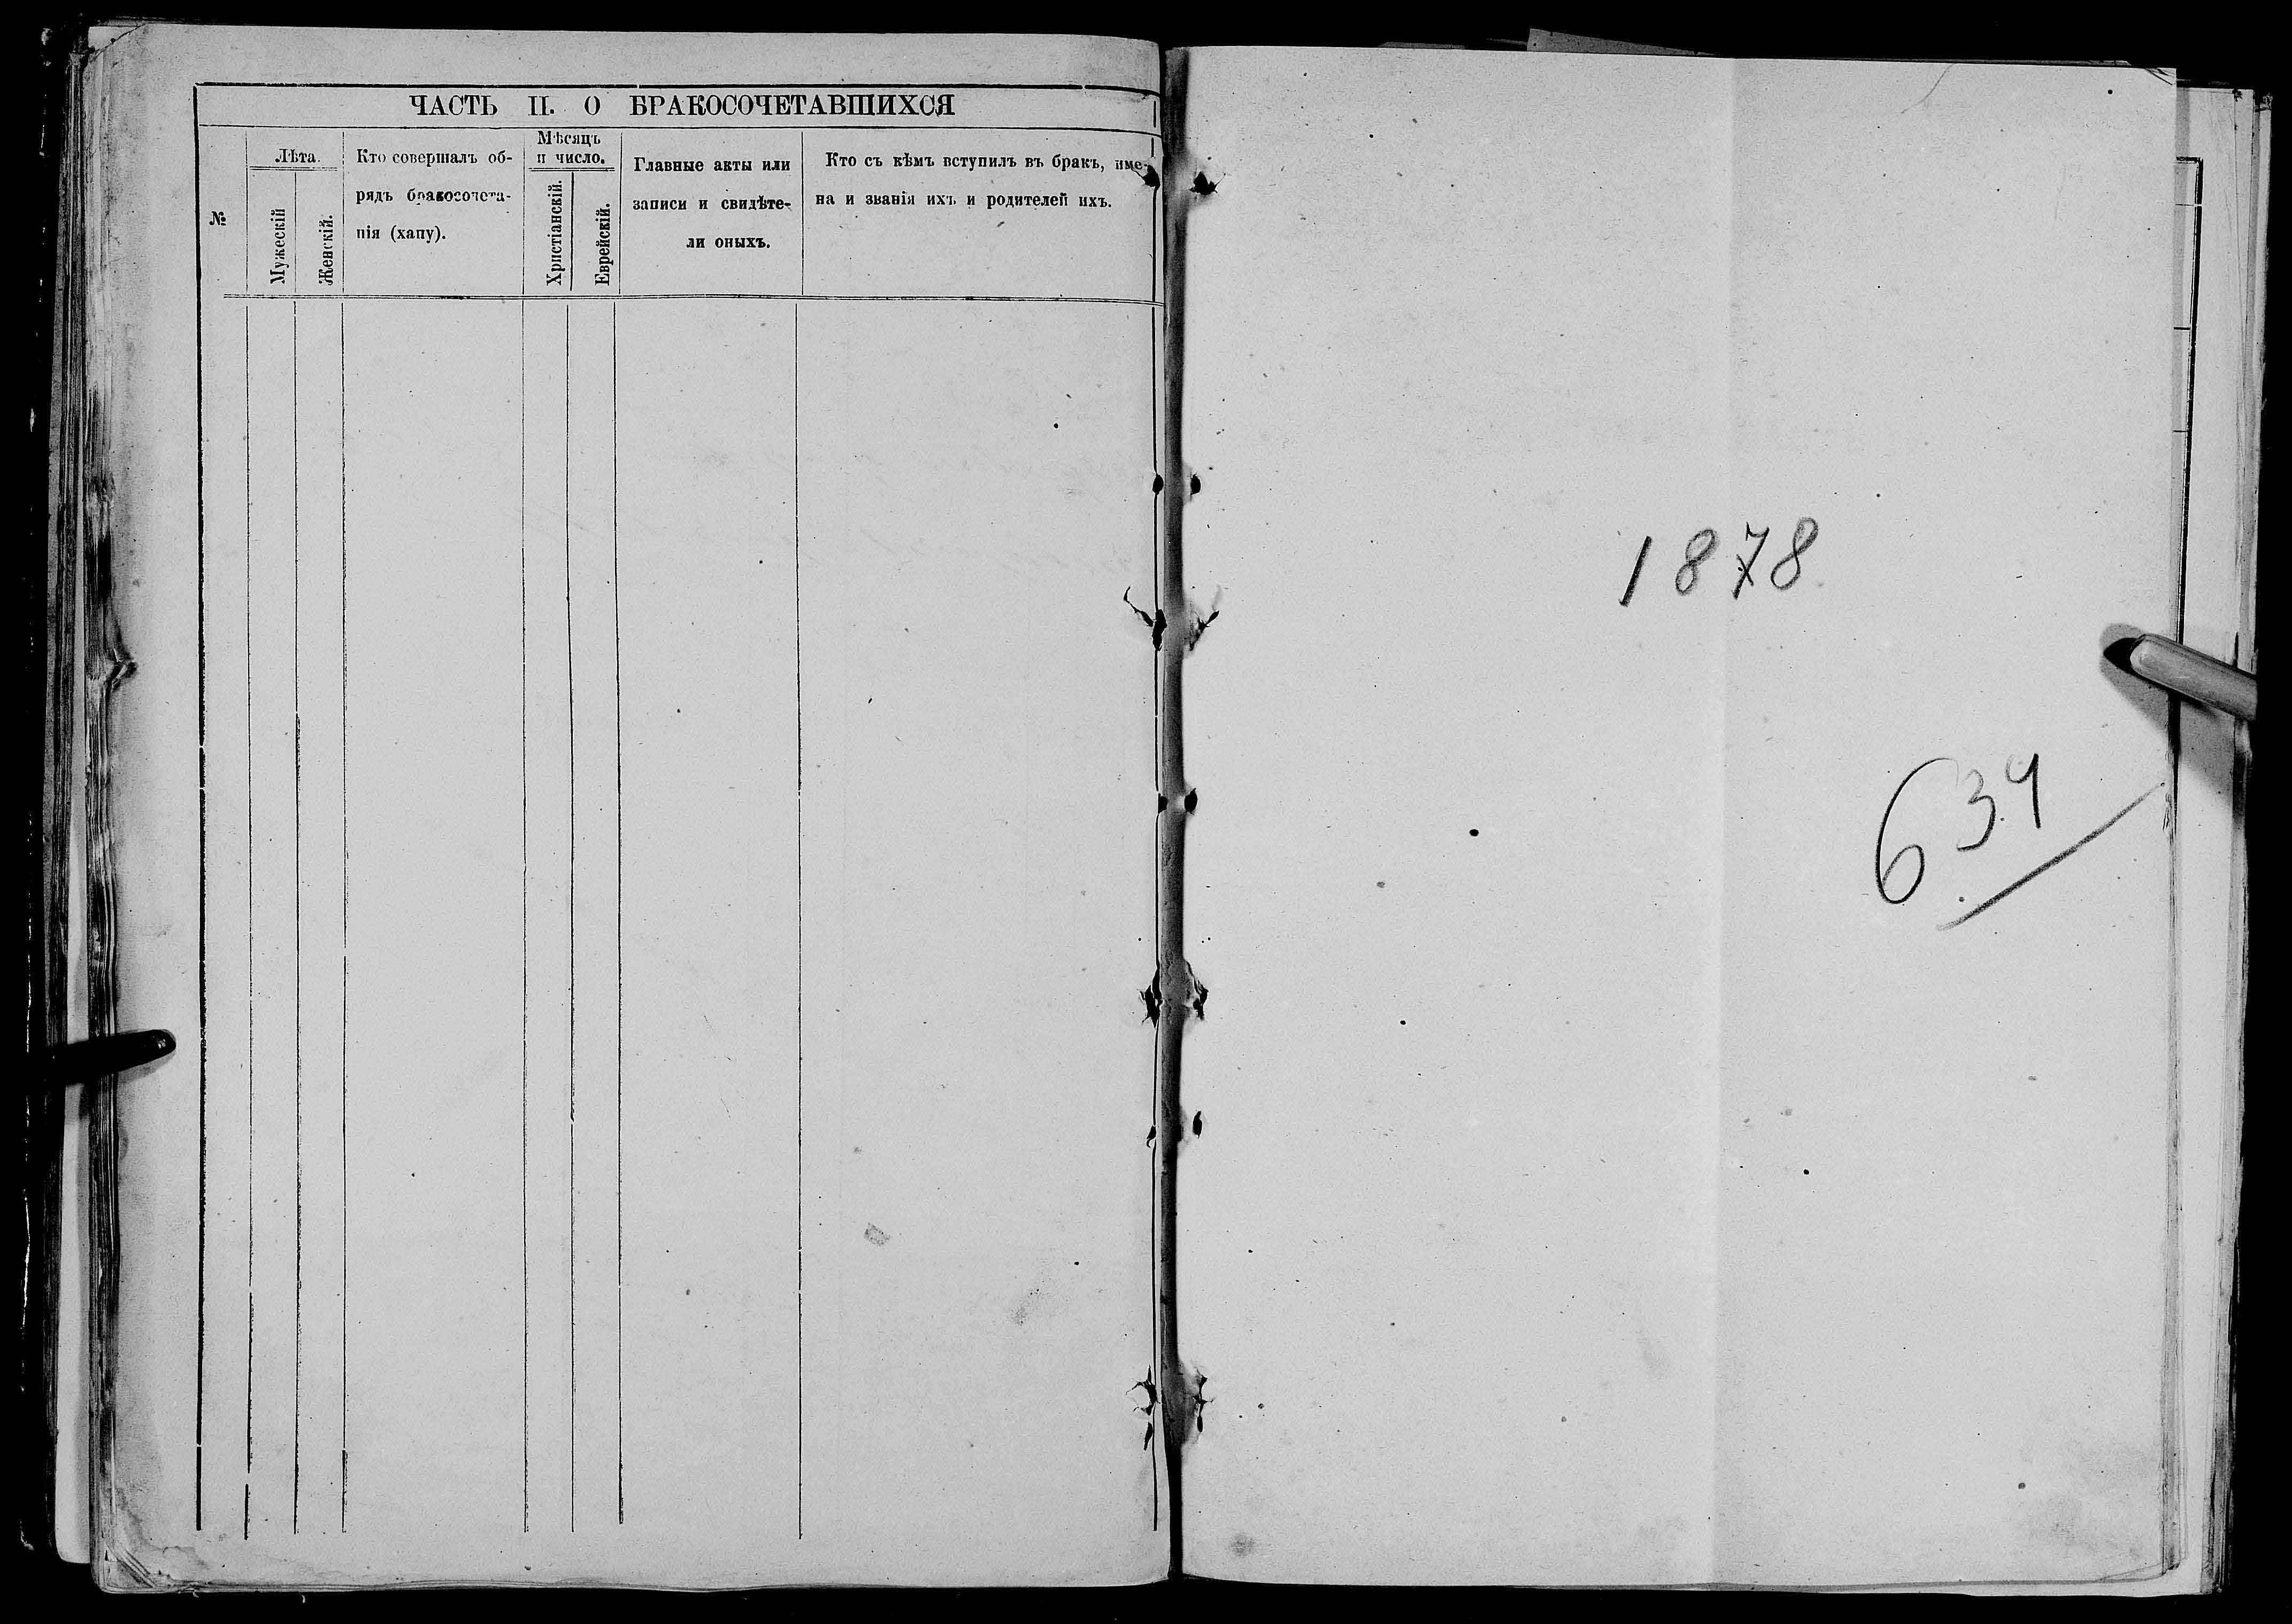 ЧАСТЬ II. О БРАКОСОЧЕТАВШИХСЯ
№
Лѣта.
Мужескій
Женскій.
Кто совершалъ об-
рядъ бракосочета-
нія (хапу).
Мѣсяцъ
и число.
Христіанскій.
Еврейскій.
Главные акты или
записи и свидѣте-
ли оныхъ.
Кто съ кѣмъ вступилъ въ бракъ, име-
на и званія ихъ и родителей ихъ.
1878
634